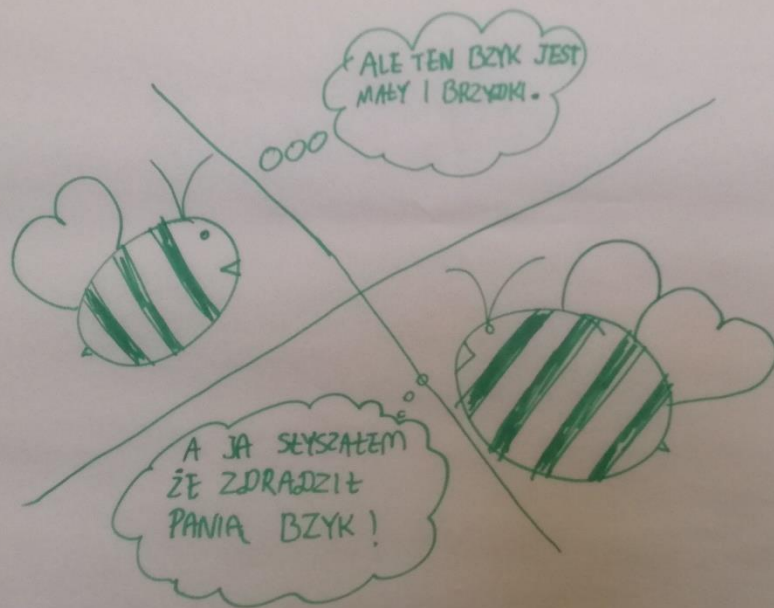 ALE TEN BZYK JEST
MAŁY I BRZYDKI.
A JA SŁYSZAŁEM
ŻE ZDRADZIŁ
PANIĄ BZYK!